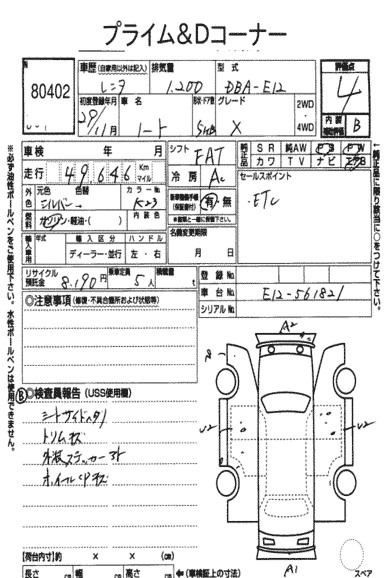 プライム&Dコーナー
№ 80402
車歴 (自家用以外は記入) 排気量 型式
レンタ 1.200 DBA-E12
評価点
4
内装補助評価 B
初度登録年月 車名 ドア形状 グレード
29/11月 ノート 5HB X
2WD・4WD
車検 年 月
走行 49,646 Km マイル
シフト FAT
冷房 AC
純正品 SR 純AW PS PW
カワ TV ナビ エアB
外色 元色 色替 カラーNo.
シルバー K23
燃料 ガソリン・軽油・( ) 内装色
新車整備手帳(保証書付) 有・無
セールスポイント
・ETC
輸入車用 年式 輸入区分 ハンドル
ディーラー・並行 左・右
名義変更期限
月 日
リサイクル預託金 8.190円 乗車定員 5人 積載量 t
登録No.
車台No. E12-561821
シリアルNo.
◎注意事項 (修復・不具合箇所および状態等)
Ⓑ◎検査員報告 (USS使用欄)
シートサイドスタリ
トリムキズ
外装ステッカー跡
ホイールCPキズ
A2
U2
U2
A1
スペア
【荷台内寸】約 × × (cm)
長さ cm 幅 cm 高さ cm ←(車検証上の寸法)
※必ず油性ボールペンをご使用下さい。水性ボールペンは使用できません。
←純正品に限り数字に○をつけて下さい。